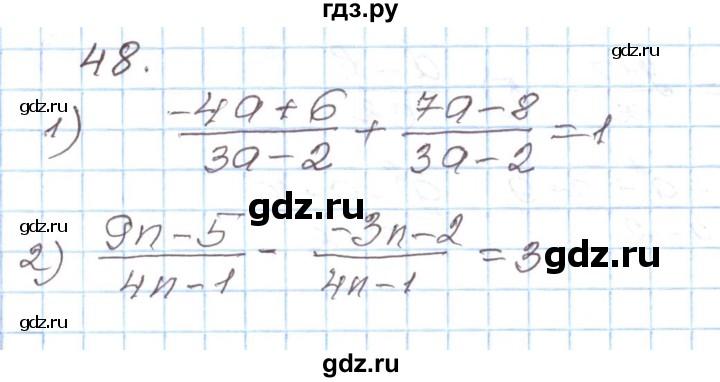 гдз.ру
48.
gdz.ru gdz.ru
1) (-4a+6)/(3a-2) + (7a-8)/(3a-2) = 1
gdz.ru
gdz.ru gdz.ru
2) (9n-5)/(4n-1) - (-3n-2)/(4n-1) = 3
gdz.ru gdz.ru
gdz.ru